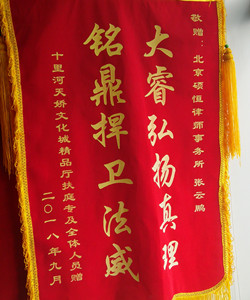 敬赠：北京硕恒律师事务所 张云鹏
大睿弘扬真理
铭鼎捍卫法威
十里河天娇文化城精品厅扶庭专及全体人员赠
二〇一八年九月